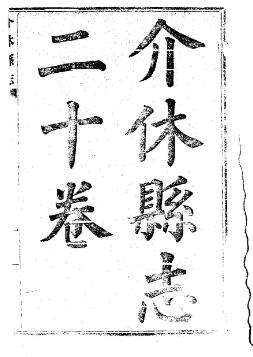 介休縣志
二十卷